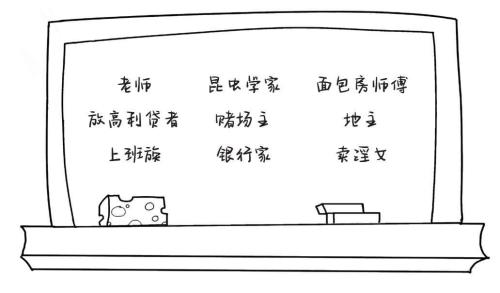 老师 昆虫学家 面包房师傅
放高利贷者 赌场主 地主
上班族 银行家 卖淫女